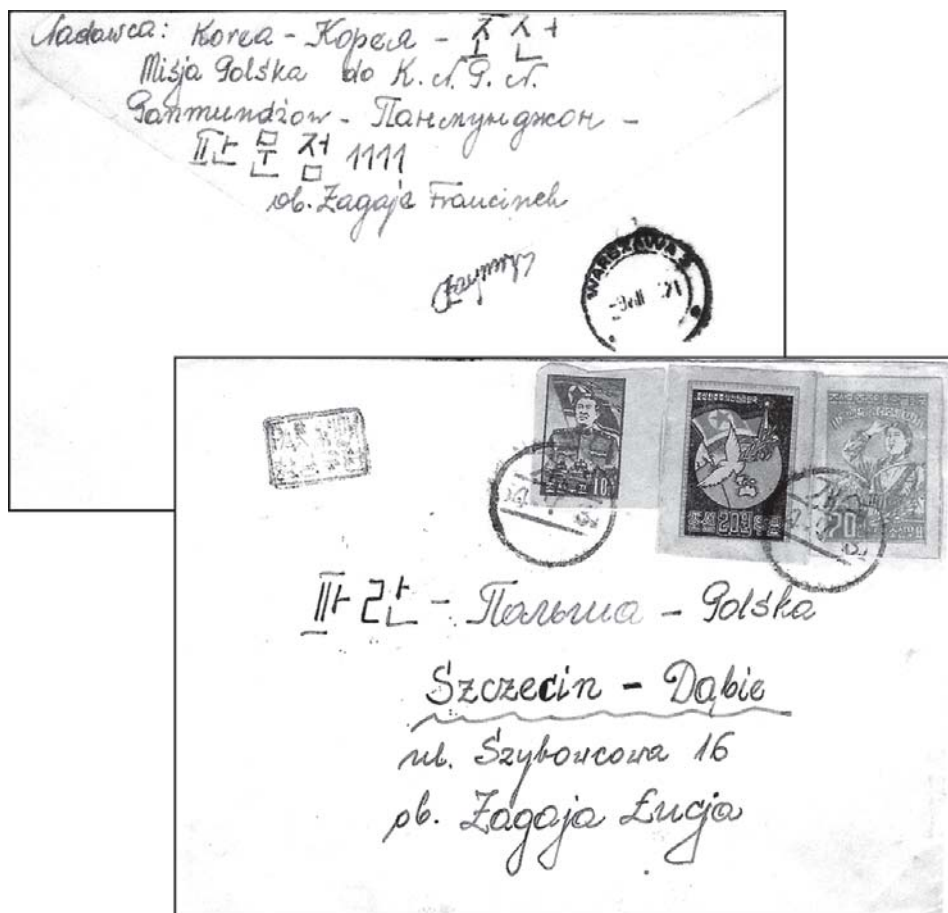 Nadawca: Korea - Корея - 조선
Misja Polska do K. N. P. N.
Panmundżow - Панмунджон -
판문점 1111
ob. Zagaja Franciszek
WARSZAWA 2
10
70
파란 - Польша - Polska
Szczecin - Dąbie
ul. Szybowcowa 16
ob. Zagaja Łucja